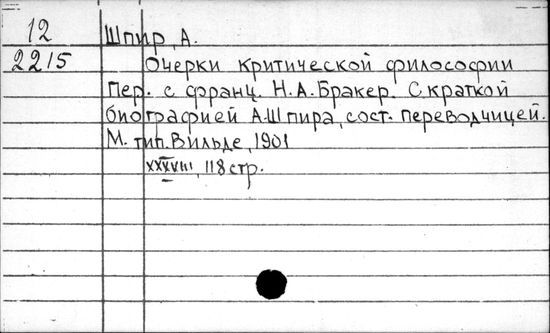 12 Шпир, А.
2215 Очерки критической философии
Пер. с франц. Н.А.Бракер. С краткой
биографией А.Шпира, сост. переводчицей.
М. тип. Вильде, 1901
XXXVIII, 118 стр.